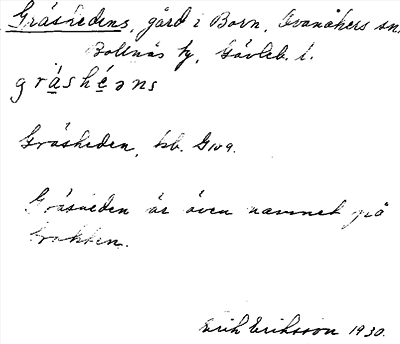 Gråshedens, gård i Born, Svanåkers sn,
Bollnäs kg, Gävleb. l.
gråshéəns
Gråsheden, kb. Gwg.
Gråsheden är även namnet på
trakten.
Erik Eriksson 1930.